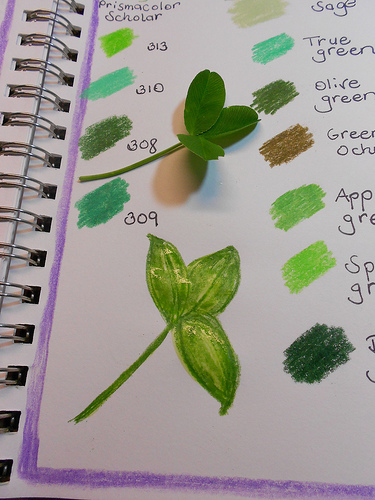 Prismacolor
Scholar
313
310
308
309
Sage
True
green
Olive
green
Green